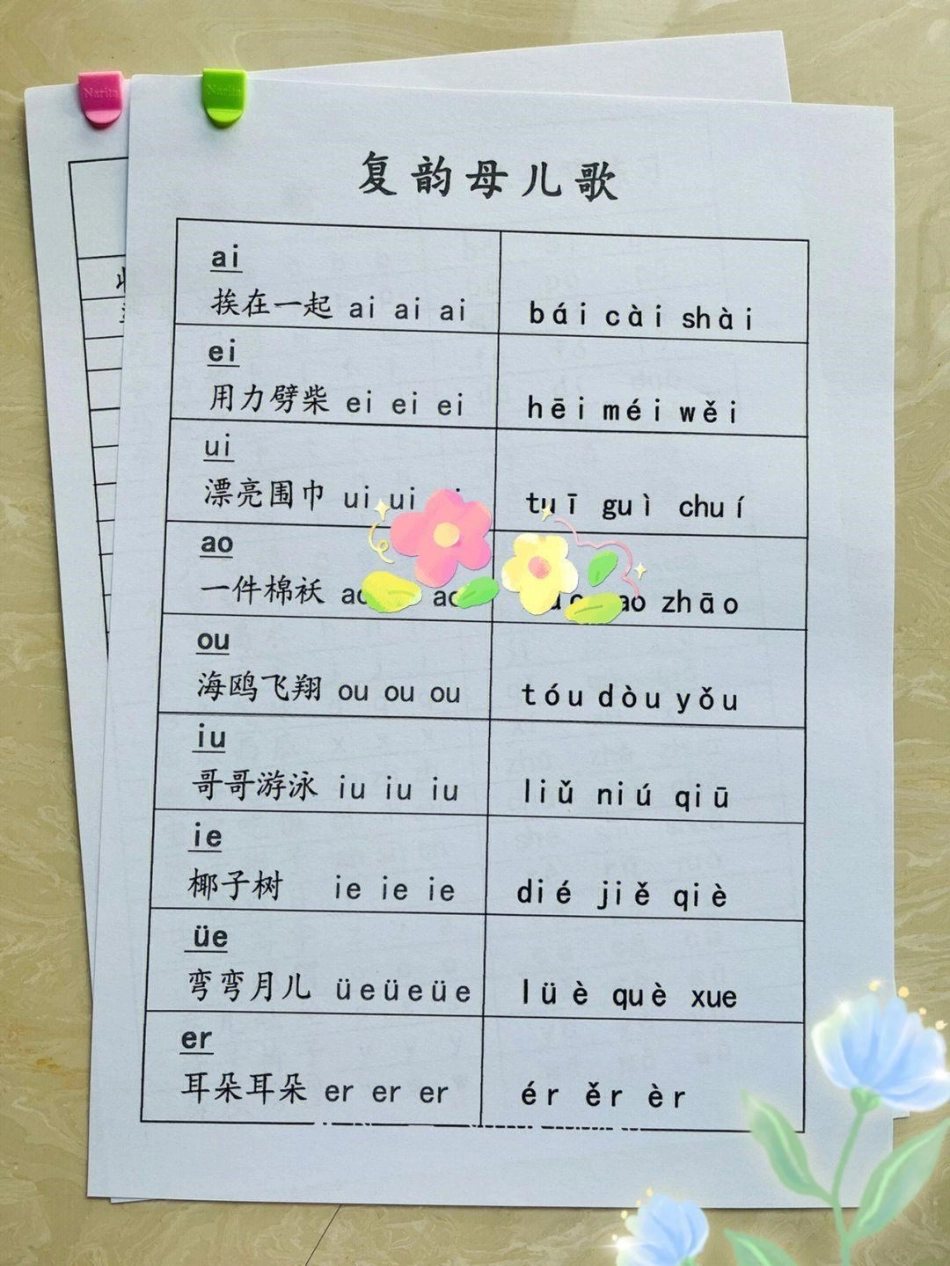 复韵母儿歌
ai
挨在一起 ai ai ai
bái cài shài
ei
用力劈柴 ei ei ei
hēi méi wěi
ui
漂亮围巾 ui ui
tuī guì chuí
ao
一件棉袄 ao ao
zhāo
ou
海鸥飞翔 ou ou ou
tóu dòu yǒu
iu
哥哥游泳 iu iu iu
liǔ niú qiū
ie
椰子树 ie ie ie
dié jiě qiè
üe
弯弯月儿 üeüeüe
lüè què xue
er
耳朵耳朵 er er er
ér ěr èr